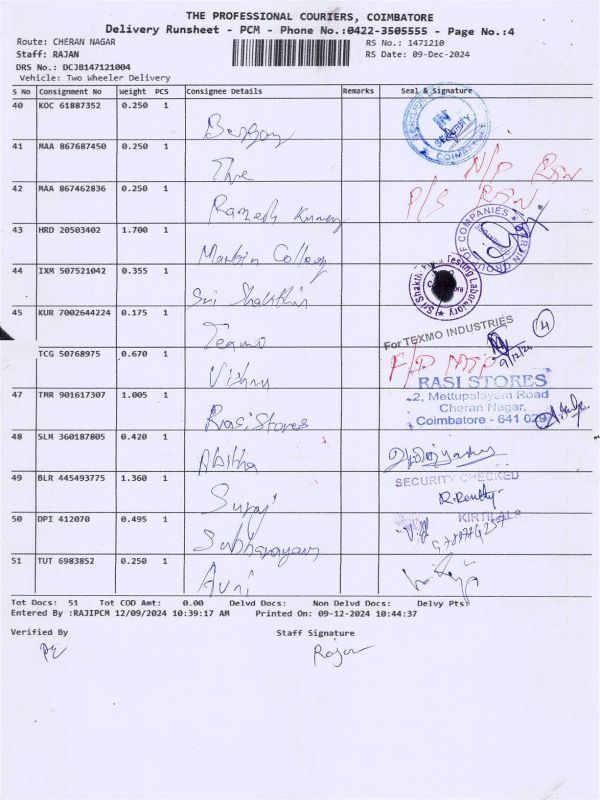 THE PROFESSIONAL COURIERS, COIMBATORE
Delivery Runsheet - PCM - Phone No.:0422-3505555 - Page No.:4
Route: CHERAN NAGAR
RS No.: 1471210
Staff: RAJAN
RS Date: 09-Dec-2024
DRS No.: DCJB147121004
Vehicle: Two Wheeler Delivery
S No Consignment No Weight PCS Consignee Details Remarks Seal & Signature
40 KOC 61887352 0.250 1
IN SECURITY COIMBATORE
41 MAA 867687450 0.250 1
N/P RSN
42 MAA 867462836 0.250 1
P/S RSN
Ramesh Kumar
43 HRD 20503402 1.700 1
GROUP OF COMPANIES
Martin College
44 IXM 507521042 0.355 1
Sri Shakthi Testing Laboratory
Sri Shakthi
45 KUR 7002644224 0.175 1
For TEXMO INDUSTRIES
14
9/12/24
Texmo
TCG 50768975 0.670 1
F/D MTP
Vishnu
RASI STORES
2, Mettupalayam Road
47 TMR 901617307 1.005 1
Cheran Nagar,
Coimbatore - 641 029
Rasi Stores
48 SLM 360187805 0.420 1
Abitha
49 BLR 445493775 1.360 1
SECURITY CHECKED
Suraj
50 DPI 412070 0.495 1
KIRTILALS
Subbarayan
51 TUT 6983852 0.250 1
Tot Docs: 51 Tot COD Amt: 0.00 Delvd Docs: Non Delvd Docs: Delvy Pts:
Entered By :RAJIPCM 12/09/2024 10:39:17 AM Printed On: 09-12-2024 10:44:37
Verified By Staff Signature
Rajan